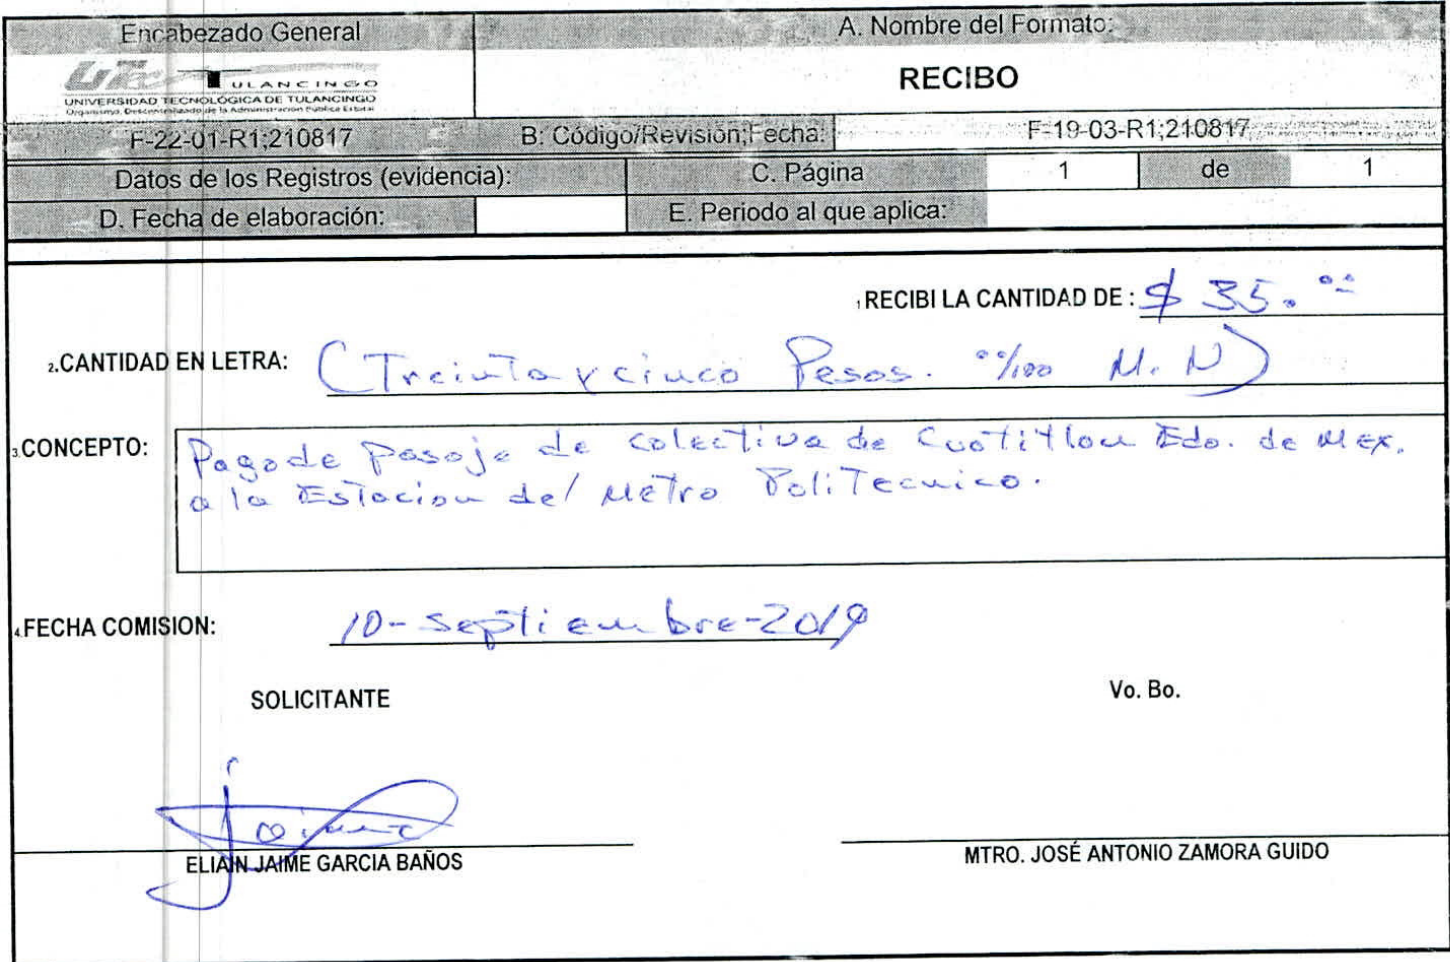 Encabezado General
A. Nombre del Formato:
UTec TULANCINGO
UNIVERSIDAD TECNOLÓGICA DE TULANCINGO
Organismo Descentralizado de la Administración Pública Estatal
RECIBO
F-22-01-R1;210817
B: Código/Revisión;Fecha:
F-19-03-R1;210817
Datos de los Registros (evidencia):
C. Página
1
de
1
D. Fecha de elaboración:
E. Periodo al que aplica:
1RECIBI LA CANTIDAD DE : $ 35.00
2.CANTIDAD EN LETRA: (Treinta y cinco Pesos. 00/100 M.N)
3.CONCEPTO: Pago de Pasaje de colectiva de Cuotitlan Edo. de Mex.
a la Estacion del Metro PoliTecnico.
4.FECHA COMISION: 10-septiembre-2019
SOLICITANTE
Vo. Bo.
Jaime
ELIAIN JAIME GARCIA BAÑOS
MTRO. JOSÉ ANTONIO ZAMORA GUIDO